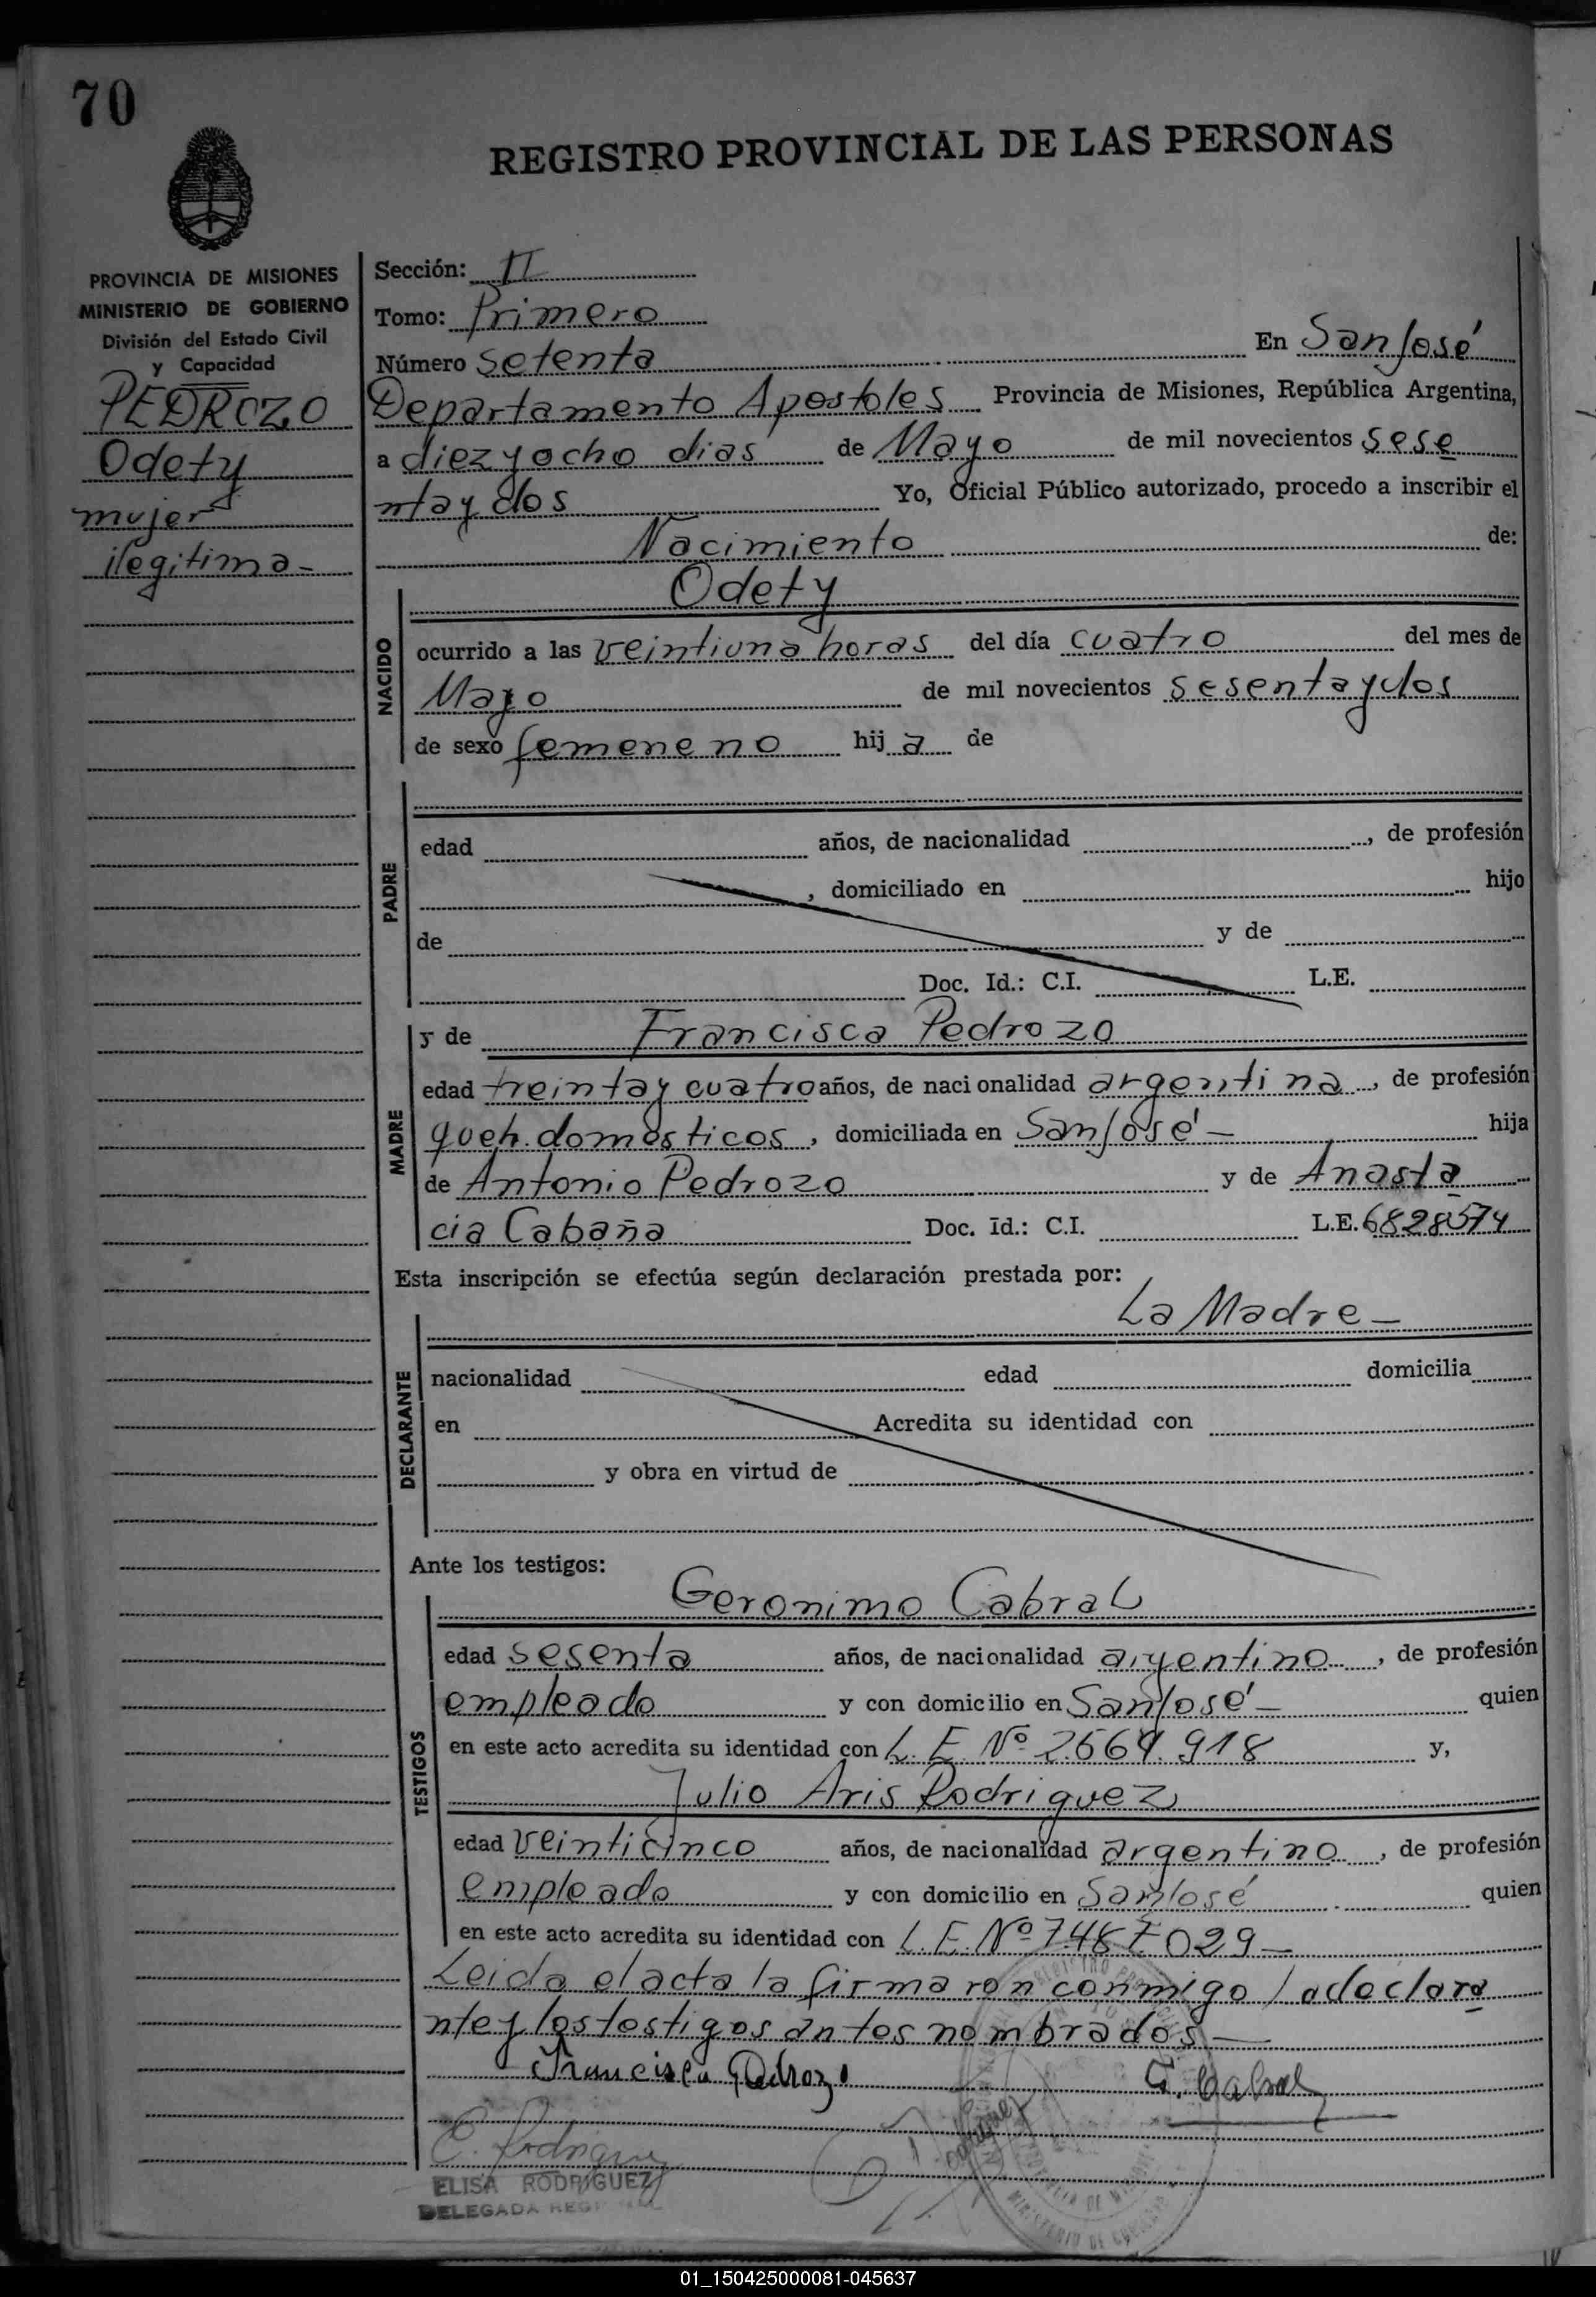 70
REGISTRO PROVINCIAL DE LAS PERSONAS
PROVINCIA DE MISIONES
MINISTERIO DE GOBIERNO
División del Estado Civil
y Capacidad
PEDROZO
Odety
mujer
ilegitima-
Sección: II
Tomo: Primero
Número setenta En San José
Departamento Apostoles Provincia de Misiones, República Argentina,
a diez y ocho dias de Mayo de mil novecientos sese
nta y dos Yo, Oficial Público autorizado, procedo a inscribir el
Nacimiento de:
NACIDO
Odety
ocurrido a las veintiuna horas del día cuatro del mes de
Mayo de mil novecientos sesenta y dos
de sexo femeneno hija de
PADRE
edad años, de nacionalidad , de profesión
, domiciliado en hijo
de y de
Doc. Id.: C.I. L.E.
MADRE
y de Francisca Pedrozo
edad treinta y cuatro años, de nacionalidad argentina , de profesión
queh. domésticos , domiciliada en San José - hija
de Antonio Pedrozo y de Anasta
cia Cabaña Doc. Id.: C.I. L.E. 6828574
Esta inscripción se efectúa según declaración prestada por:
La Madre -
DECLARANTE
nacionalidad edad domicilia
en Acredita su identidad con
y obra en virtud de
Ante los testigos:
TESTIGOS
Geronimo Cabral
edad sesenta años, de nacionalidad argentino , de profesión
empleado y con domicilio en San José - quien
en este acto acredita su identidad con L. E. Nº 2.664.918 y,
Julio Aris Rodriguez
edad veinticinco años, de nacionalidad argentino , de profesión
empleado y con domicilio en San José quien
en este acto acredita su identidad con L.E. Nº 7.487029 -
Leida el acta la firmaron conmigo la declara
nte y los testigos antes nombrados -
Francisca Pedrozo
G. Cabral
E. Rodriguez
ELISA RODRIGUEZ
DELEGADA
01_150425000081-045637